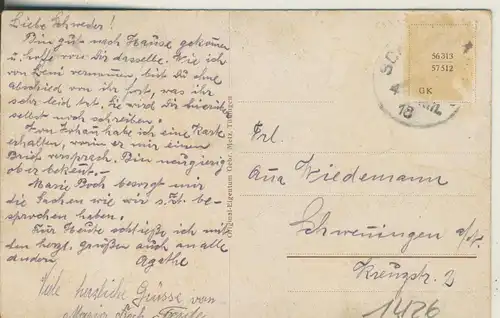 Liebe Schweder!
Bin gut nach Hause gekommen
u. hoffe von Dir dasselbe. Wie ich
von Leni vernommen, bist Du ohne
abschied von ihr fort, was ihr
sehr leid tat. Sie wird Dir hierüber
selbst noch schreiben.
Von Johan habe ich eine Karte
erhalten, worin er mir einen
Brief versprach. Bin neugierig
ob er bekent.-
Marie Boch besorgt mir
die Sachen wie wir s. Zt. be-
sprochen haben.
Für Heute schließe ich mit
den herzl. grüßen auch an alle
andern Agathe
Viele herzliche Grüsse von
Maria
Original-Eigentum Gebr. Metz, Tübingen
56313
57512
GK
4
18
Frl.
Ana Wiedemann
Schwenningen a/N.
Kreuzstr. 3
1426